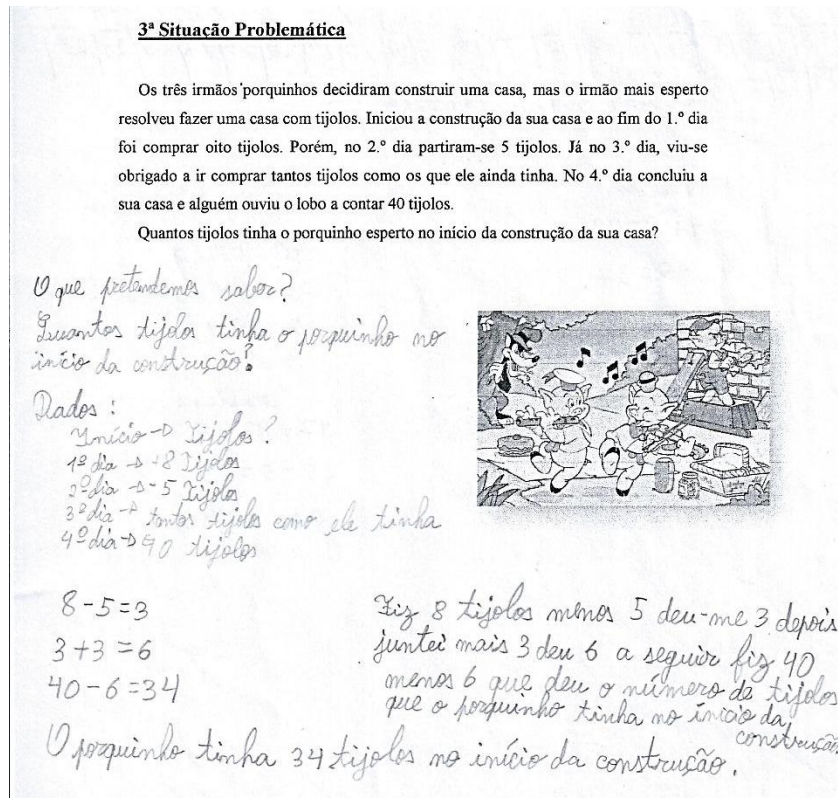 3ª Situação Problemática
Os três irmãos porquinhos decidiram construir uma casa, mas o irmão mais esperto
resolveu fazer uma casa com tijolos. Iniciou a construção da sua casa e ao fim do 1.º dia
foi comprar oito tijolos. Porém, no 2.º dia partiram-se 5 tijolos. Já no 3.º dia, viu-se
obrigado a ir comprar tantos tijolos como os que ele ainda tinha. No 4.º dia concluiu a
sua casa e alguém ouviu o lobo a contar 40 tijolos.
Quantos tijolos tinha o porquinho esperto no início da construção da sua casa?
O que pretendemos saber?
Quantos tijolos tinha o porquinho no
início da construção?
Dados:
Início → Tijolos?
1º dia → +8 Tijolos
2º dia → -5 Tijolos
3º dia → tantos tijolos como ele tinha
4º dia → 40 tijolos
8-5=3
3+3=6
40-6=34
Fiz 8 tijolos menos 5 deu-me 3 depois
juntei mais 3 deu 6 a seguir fiz 40
menos 6 que deu o número de tijolos
que o porquinho tinha no início da
construção
O porquinho tinha 34 tijolos no início da construção.